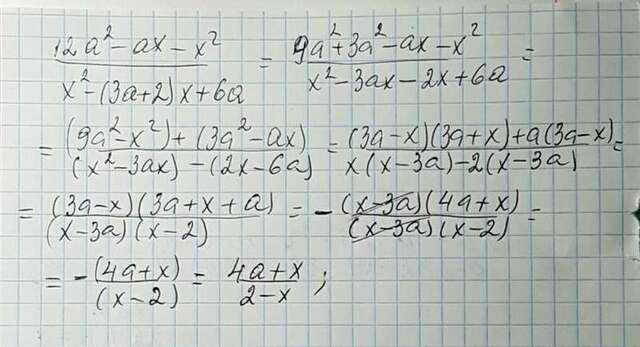 (12a² - ax - x²)/(x² - (3a+2)x + 6a) = (9a² + 3a² - ax - x²)/(x² - 3ax - 2x + 6a) =
= ((9a² - x²) + (3a² - ax))/((x² - 3ax) - (2x - 6a)) = ((3a - x)(3a + x) + a(3a - x))/(x(x - 3a) - 2(x - 3a)) =
= ((3a - x)(3a + x + a))/((x - 3a)(x - 2)) = -((x - 3a)(4a + x))/((x - 3a)(x - 2)) =
= -(4a + x)/(x - 2) = (4a + x)/(2 - x) ;